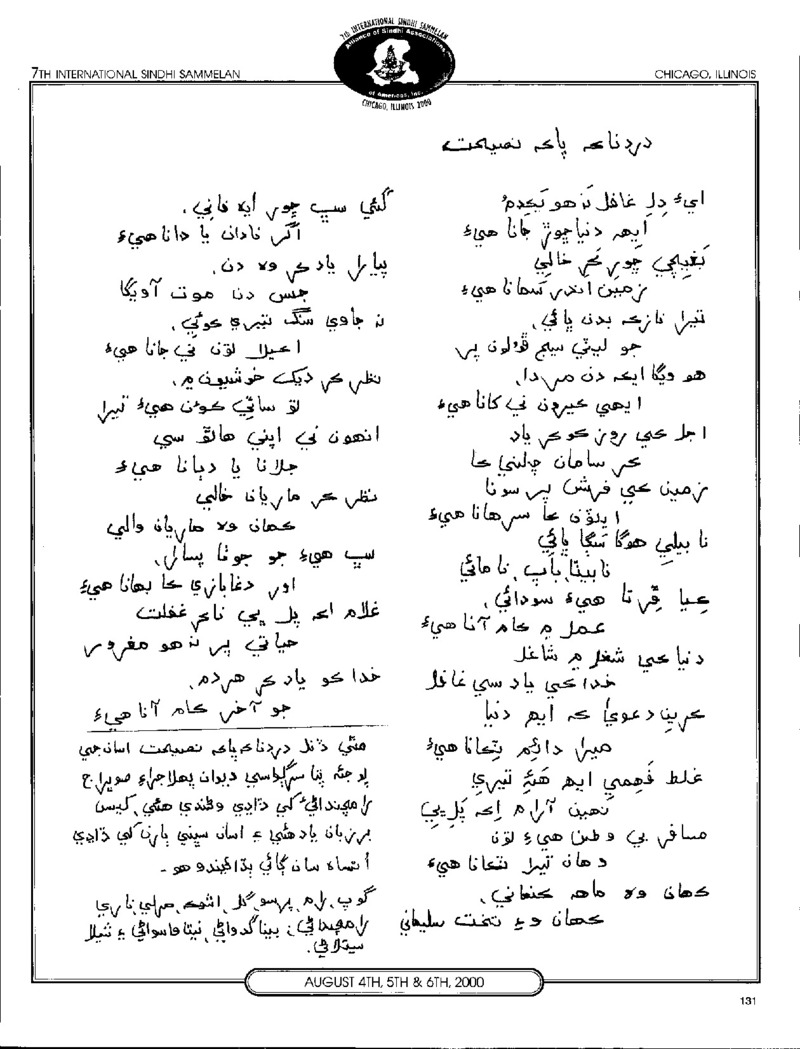 7TH INTERNATIONAL SINDHI SAMMELAN
7TH INTERNATIONAL SINDHI SAMMELAN
Alliance of Sindhi Associations
of Americas, Inc.
CHICAGO, ILLINOIS 2000
CHICAGO, ILLINOIS
دردناڪ پاڪ نصيحت
اي دِل غافل نَه هو يَڪدم
ايھ دنيا ڇوڙ جانا هيءُ
بَغيچي ڇوڙ ڪر خالي
زمين اندر سَمانا هيءُ
تيرا نازڪ بدن ڀائي
جو ليٽي سيج ڦولون پر
هوويگا ايڪ دن مردا
ايهي ڪيرون ني کانا هيءُ
اجل کي روز کو ڪر ياد
ڪر سامان چلني ڪا
زمين ڪي فرش پر سونا
اينٽون ڪا سرهانا هيءُ
نا بيلي هوگا سَڳا ڀائي
نا بيٽا، باپ، نا مائي
ڪِيا ڦِرتا هيءُ سودائي
عمل ۾ ڪام آنا هيءُ
دنيا ڪي شغل ۾ شاغل
خدا ڪي ياد سي غافل
ڪرين دعويٰ ڪہ ايھ دنيا
ميرا دائِم ٺڪانا هيءُ
غلط فَهمي ايھ هَئه تيري
نهين آرام اِڪ پَل ڀي
مسافر بي وطن هيءُ تون
ڪهان تيرا ٺڪانا هيءُ
ڪهان وه ماهہ ڪنعاني
ڪهان وه تخت سليماني
گئي سڀ ڇوڙ ايہ فاني
اگر نادان يا دانا هيءُ
پيارا ياد ڪر وہ دن
جس دن موت آويگا
نہ جاوي سنگ تيري ڪوئي
اڪيلا تون ني جانا هيءُ
نظر ڪر ديک خوشيون ۾
تو ساٿي ڪون هيءُ تيرا
انهون ني اپني هاٿو سي
جلانا يا دٻانا هيءُ
نظر ڪر ماريان خالي
ڪهان وہ ماريان والي
سڀ هيءُ جو جوٺا پسارا
اور دغابازي ڪا بهانا هيءُ
غلام اڪ پل ڀي نا ڪر غفلت
حياتي پر نہ هو مغرور
خدا ڪو ياد ڪر هردم
جو آخر ڪام آنا هيءُ
مٿي ڏنل دردناڪ پاڪ نصيحت اسان جي
ديوان پهلاجراءِ
رامچنداڻيءَ کي ڏاڍي وڻندي هئي، کيس
برزبان ياد هئي ۽ اسان سڀني ٻارن کي ڏاڍي
اُتساهہ سان ڳائي ٻڌائيندو هو -
گوپ، رام، پرسو، گل، اشوڪ، مرلي، ناري
رامچنداڻي، بينا گدواڻي، نيتا واسواڻي ۽ شيلا
سيتلاڻي.
AUGUST 4TH, 5TH & 6TH, 2000
131